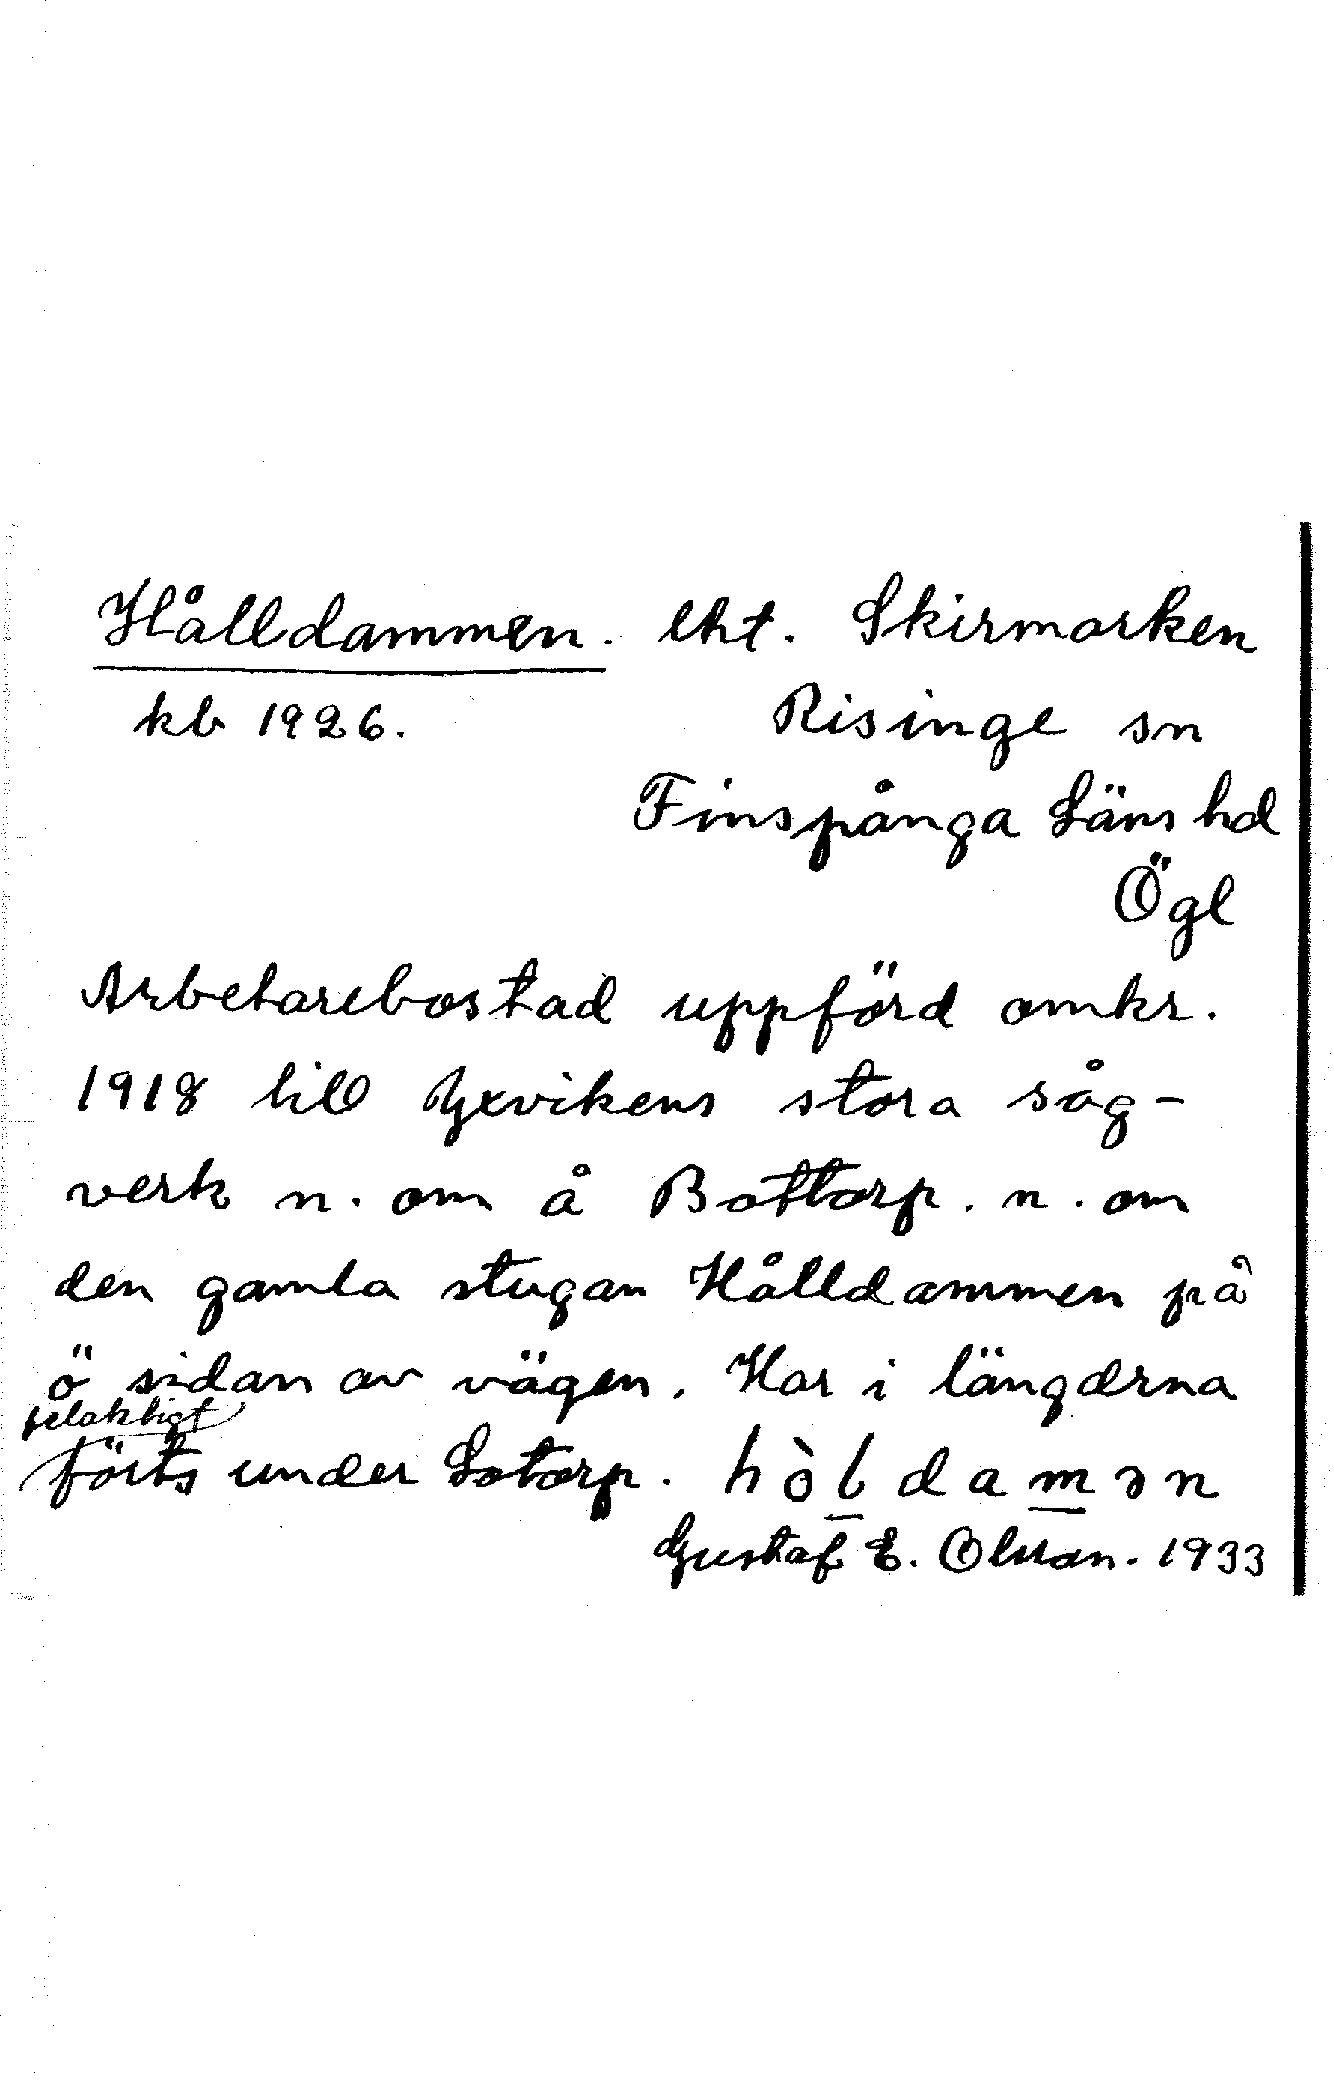 Hålldammen. lht. Skirmarken
kb 1926. Risinge sn
Finspånga Läns hd
Ögl
Arbetarebostad uppförd omkr.
1918 till Yxvikens stora såg-
verk n. om å Bottorp. n. om
den gamla stugan Hålldammen på
ö sidan av vägen. Har i längderna
felaktigt
förts under Lotorp. hòldamən
Gustaf E. Olsson. 1933